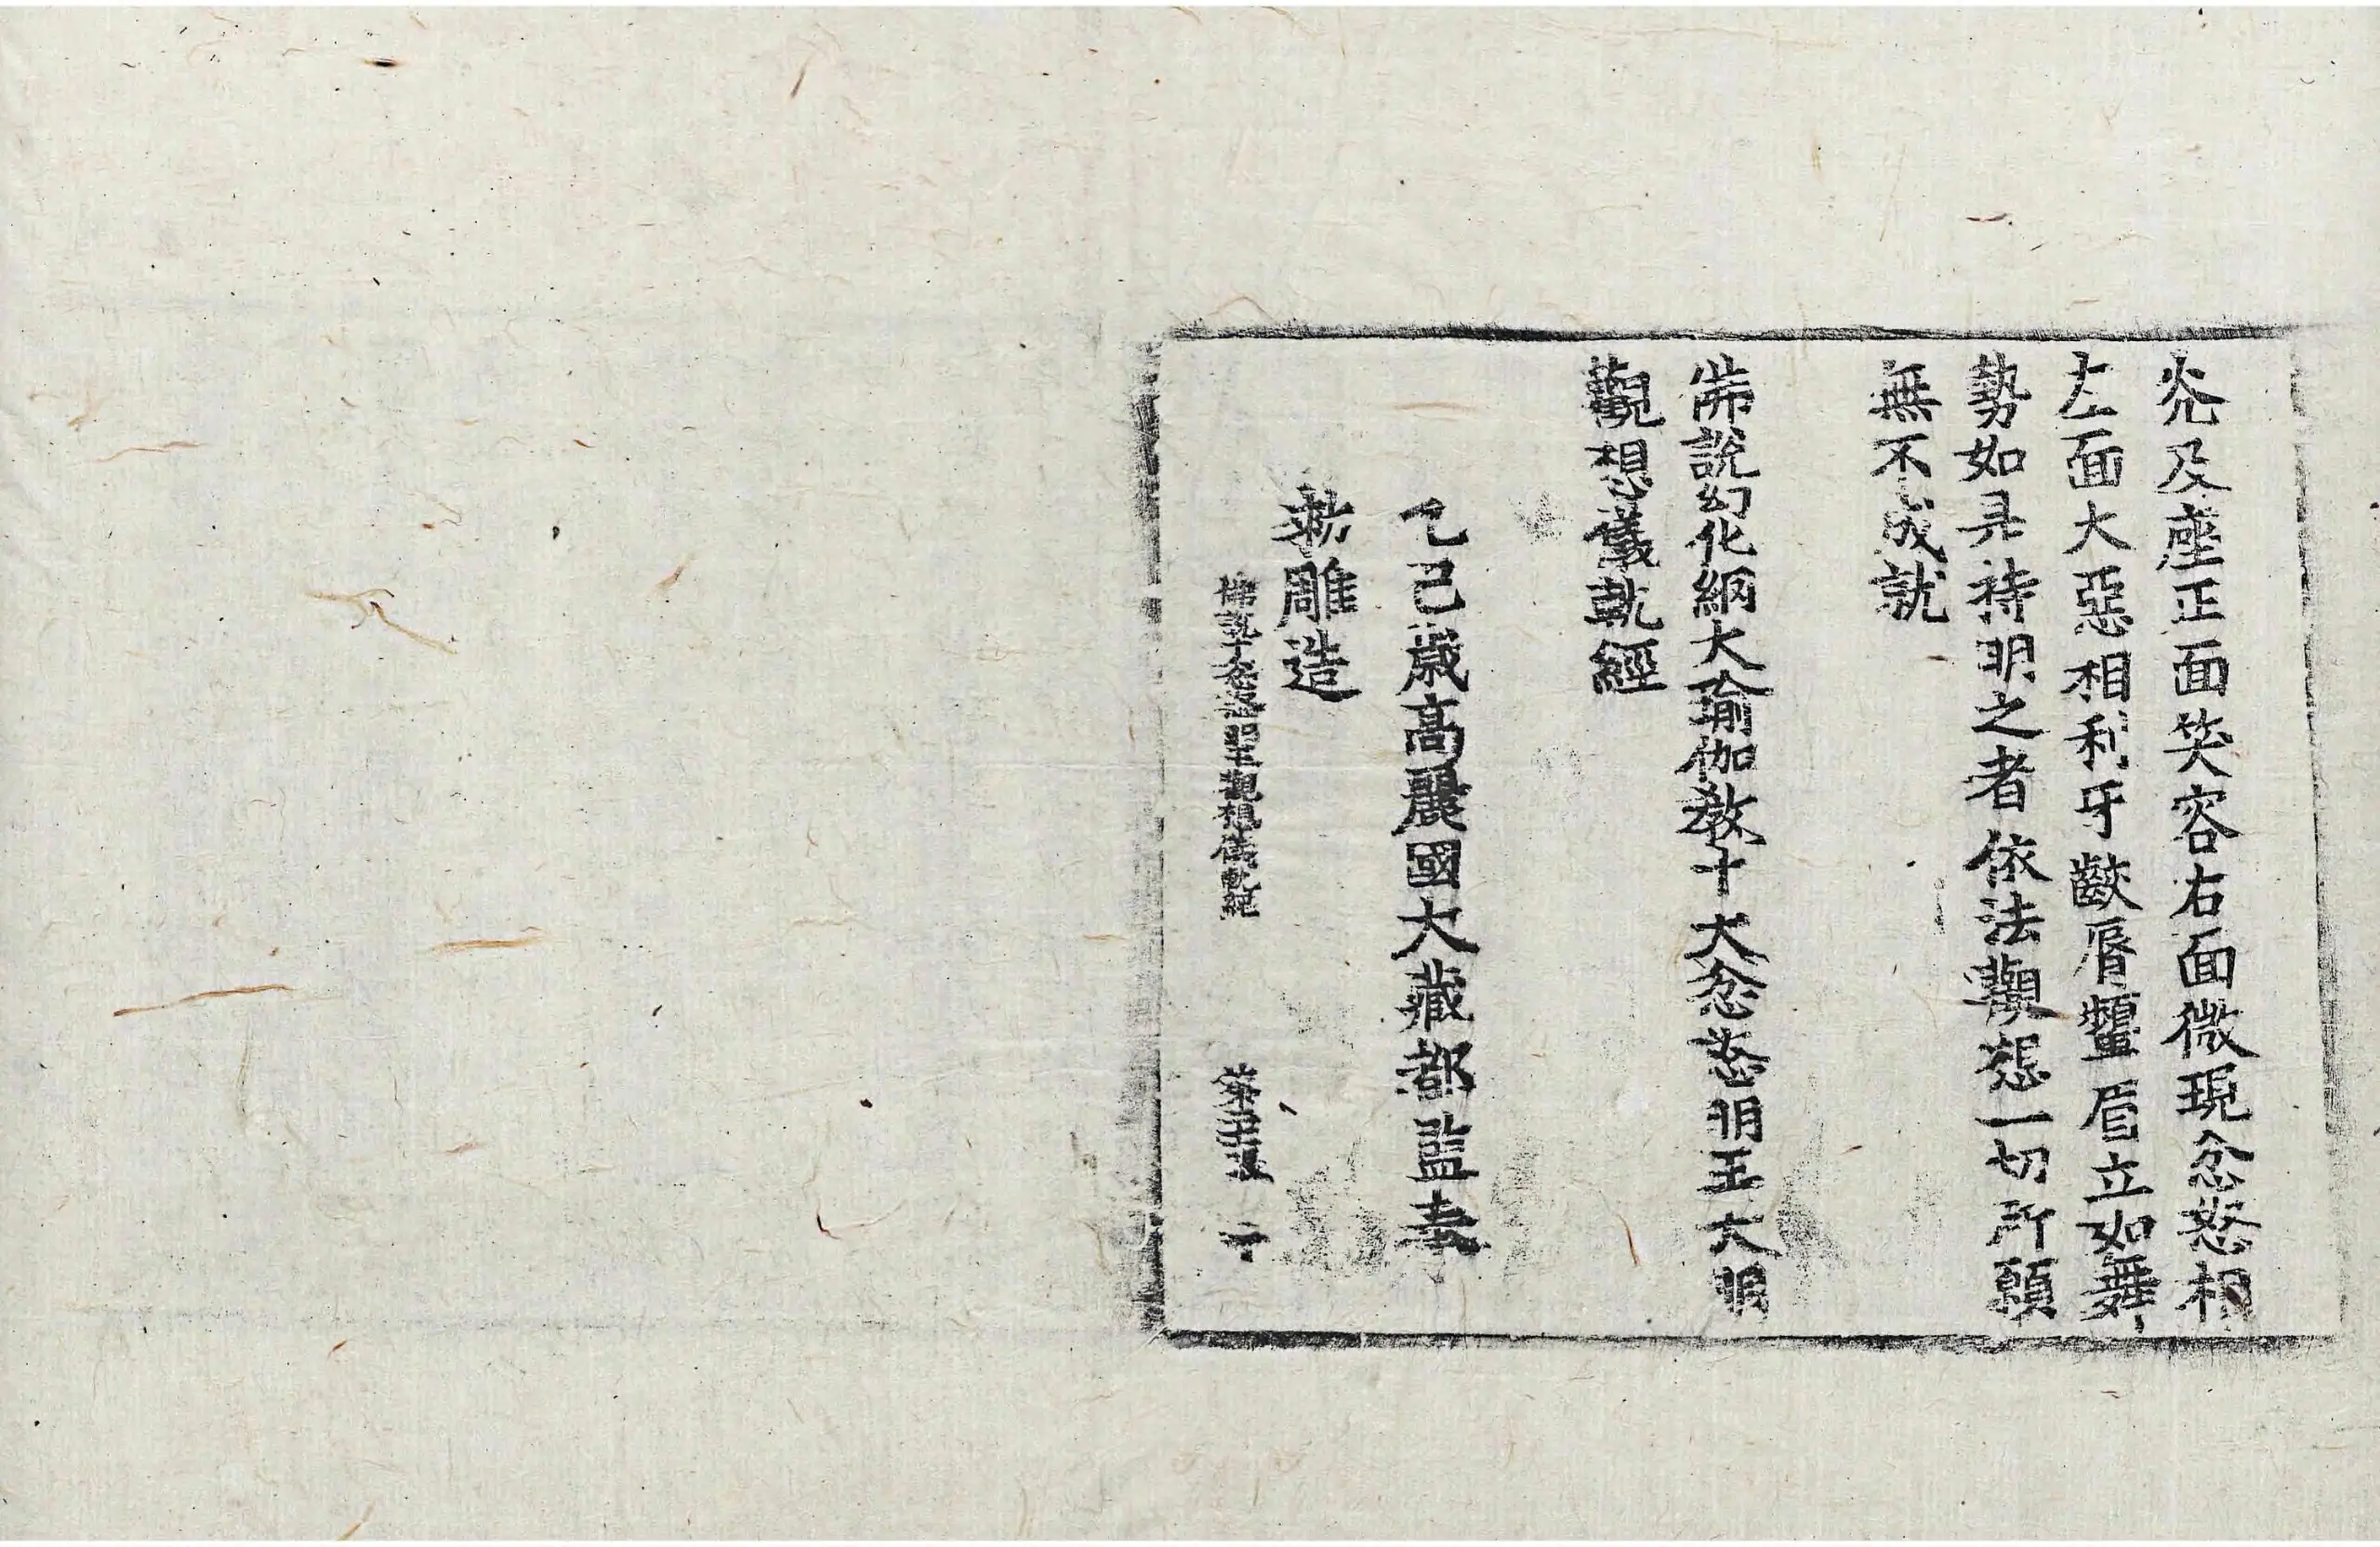 光及座正面笑容右面微現忿怒相
左面大惡相利牙齩脣顰眉立如舞
勢如是持明之者依法觀想一切所願
無不成就
佛說幻化網大瑜伽教十大忿怒明王大明
觀想儀軌經
乙巳歲高麗國大藏都監奉
勅雕造
佛說十忿怒明王觀想儀軌經 第 張